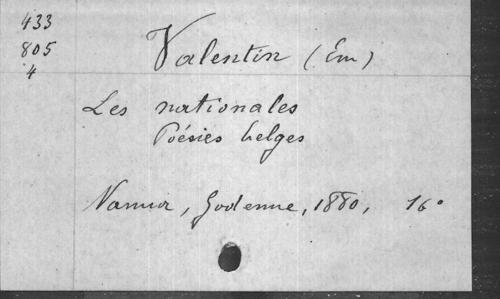 433
805
4
Valentin (Em)
Les nationales
Poésies belges
Namur, Godenne, 1880, 16°